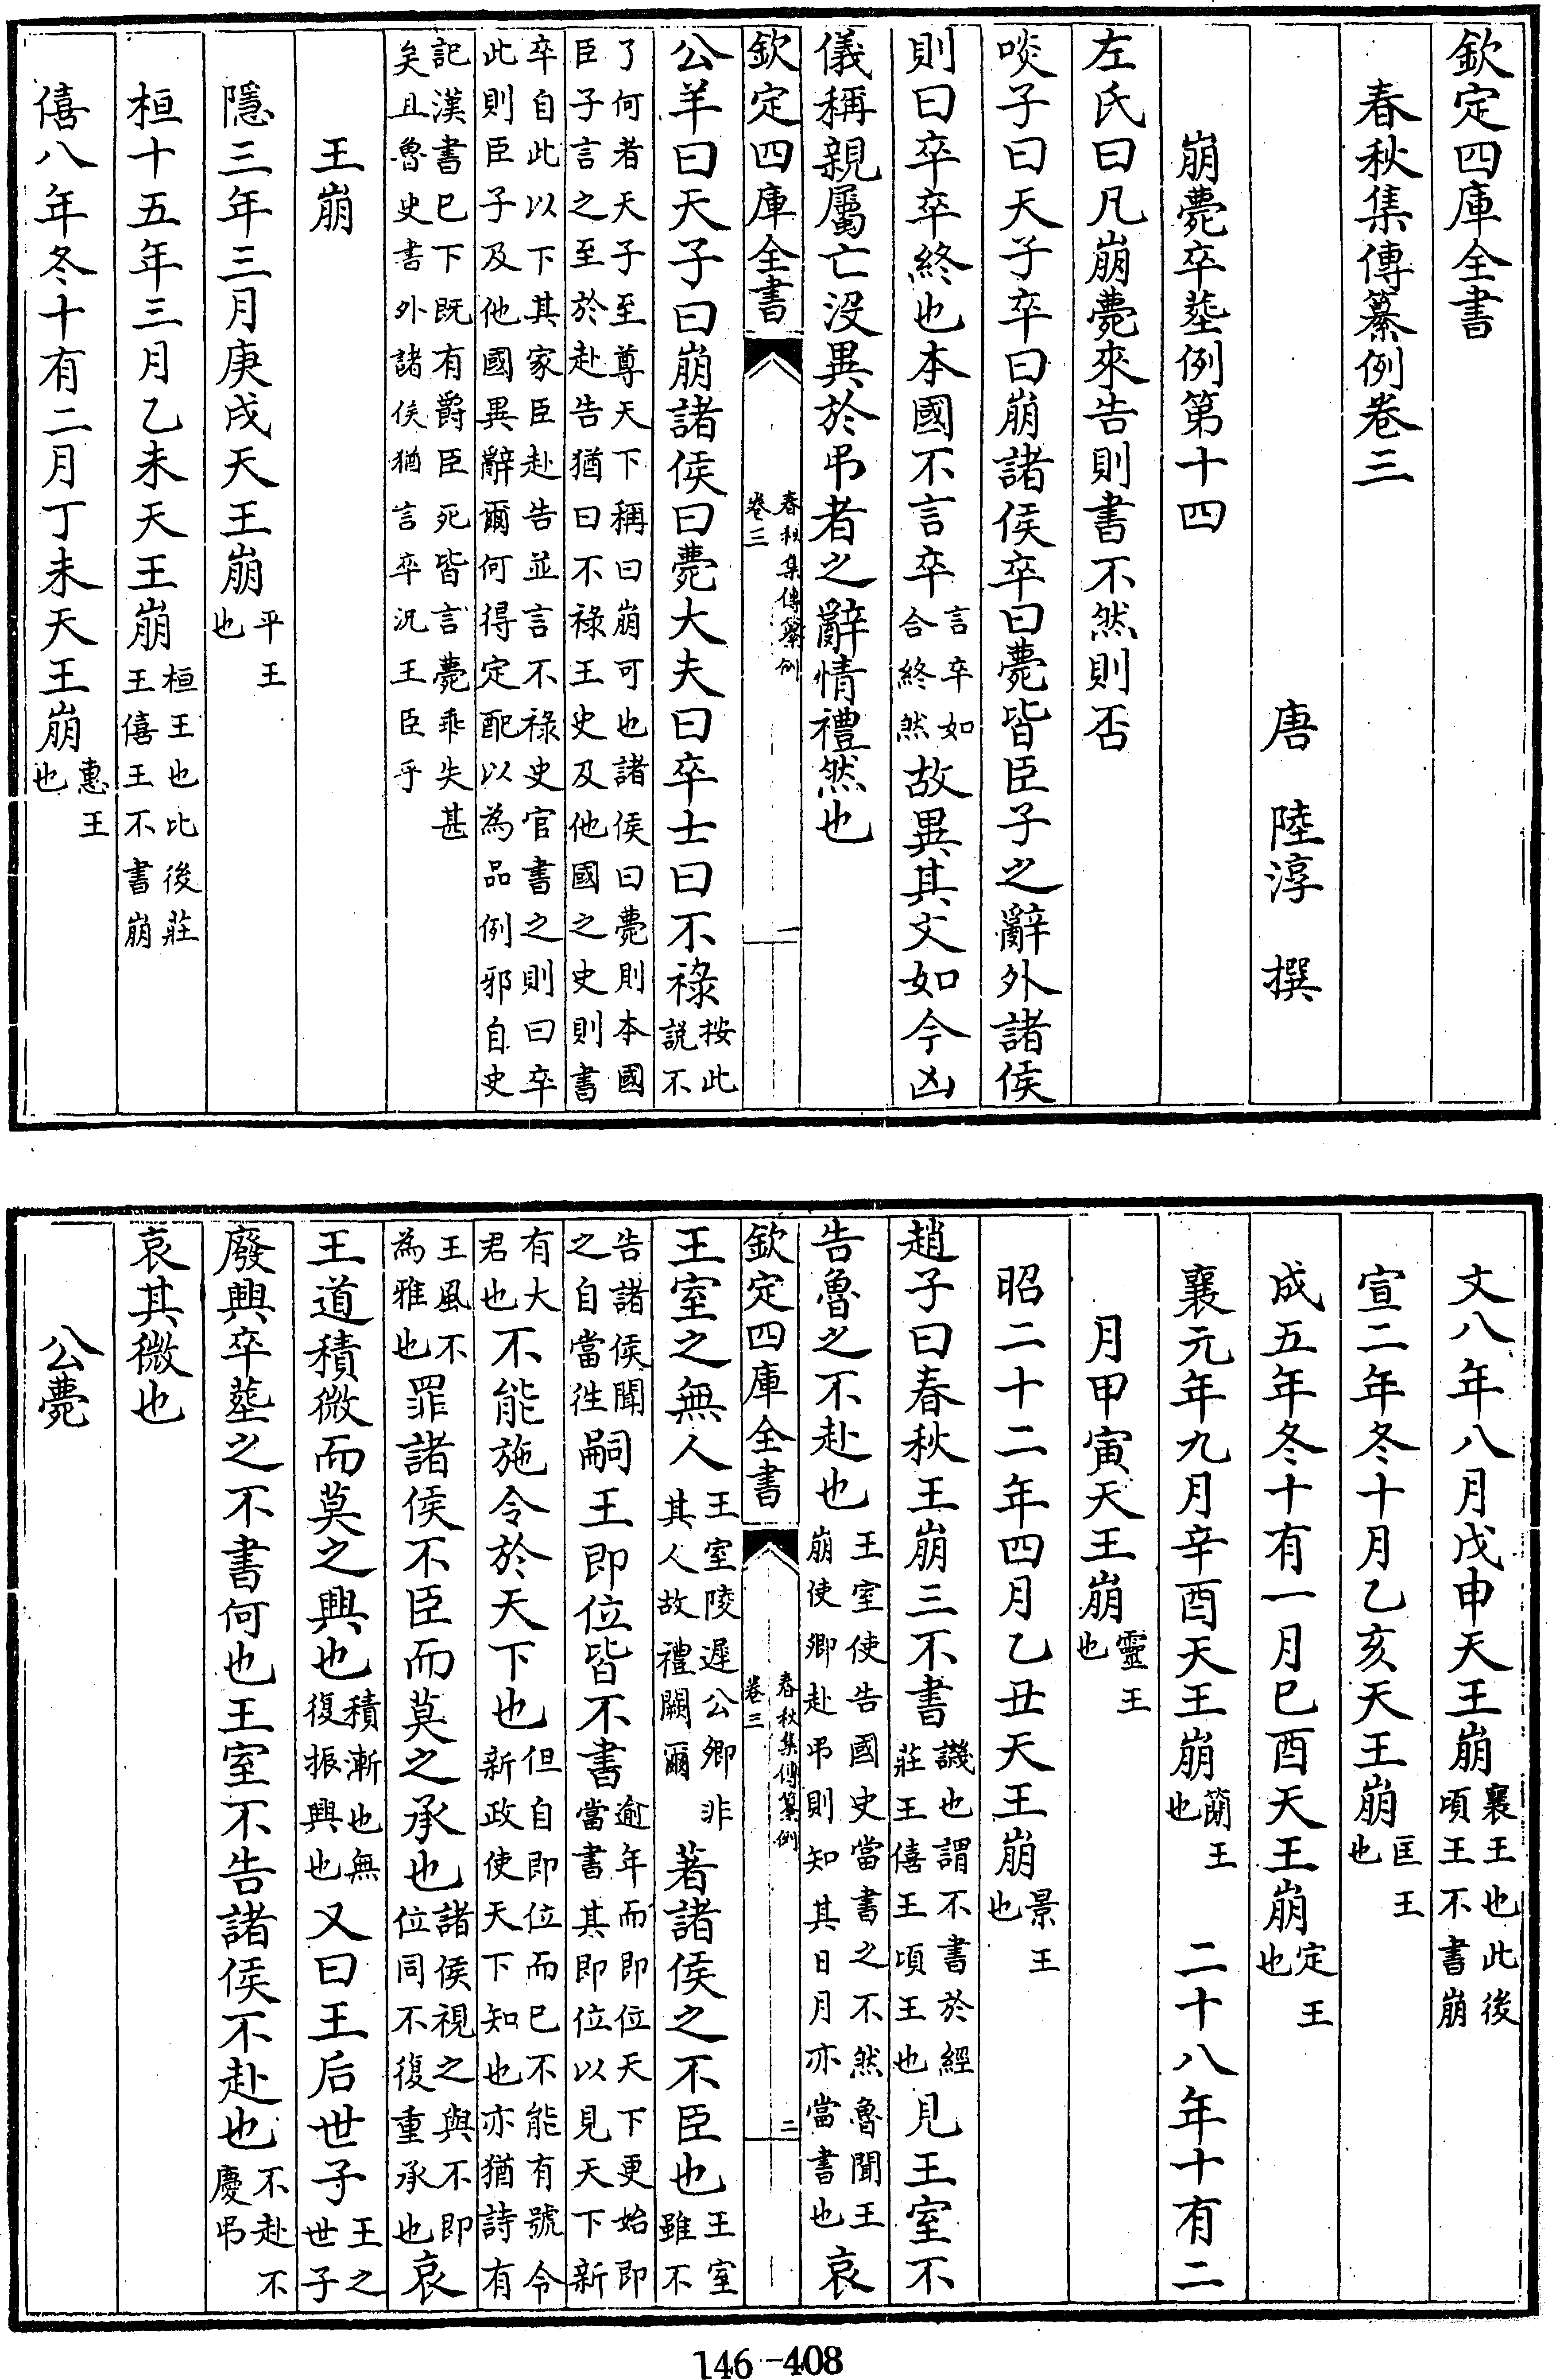 欽定四庫全書
春秋集傳纂例卷三
唐 陸淳 撰
崩薨卒塟例第十四
左氏曰凡崩薨來告則書不然則否
啖子曰天子卒曰崩諸侯卒曰薨皆臣子之辭外諸侯
則曰卒卒終也本國不言卒言卒如合終然故異其文如今凶
儀稱親屬亡没異於弔者之辭情禮然也
欽定四庫全書
春秋集傳纂例
卷三
一
公羊曰天子曰崩諸侯曰薨大夫曰卒士曰不祿按此說不
了何者天子至尊天下稱曰崩可也諸侯曰薨則本國
臣子言之至於赴告猶曰不祿王史及他國之史則書
卒自此以下其家臣赴告並言不祿史官書之則曰卒
此則臣子及他國異辭爾何得定配以為品例邪自史
記漢書已下既有爵臣死皆言薨乖失甚
矣且魯史書外諸侯猶言卒況王臣乎
王崩
隱三年三月庚戌天王崩平王也
桓十五年三月乙未天王崩桓王也比後莊王僖王不書崩
僖八年冬十有二月丁未天王崩惠王也
文八年八月戊申天王崩襄王也此後頃王不書崩
宣二年冬十月乙亥天王崩匡王也
成五年冬十有一月己酉天王崩定王也
襄元年九月辛酉天王崩簡王也 二十八年十有二
月甲寅天王崩靈王也
昭二十二年四月乙丑天王崩景王也
趙子曰春秋王崩三不書譏也謂不書於經莊王僖王頃王也見王室不
告魯之不赴也王室使告國史當書之不然魯聞王崩使卿赴弔則知其日月亦當書也哀
欽定四庫全書
春秋集傳纂例
卷三
二
王室之無人王室陵遲公卿非其人故禮闕爾著諸侯之不臣也王室雖不
告諸侯聞之自當徃嗣王即位皆不書逾年而即位天下更始即當書其即位以見天下新
有大君也不能施令於天下也但自即位而已不能有號令新政使天下知也亦猶詩有
王風不為雅也罪諸侯不臣而莫之承也諸侯視之與不即位同不復重承也哀
王道積微而莫之興也積漸也無復振興也又曰王后世子王之世子
廢興卒塟之不書何也王室不告諸侯不赴也不赴不慶弔
哀其微也
公薨
146-408